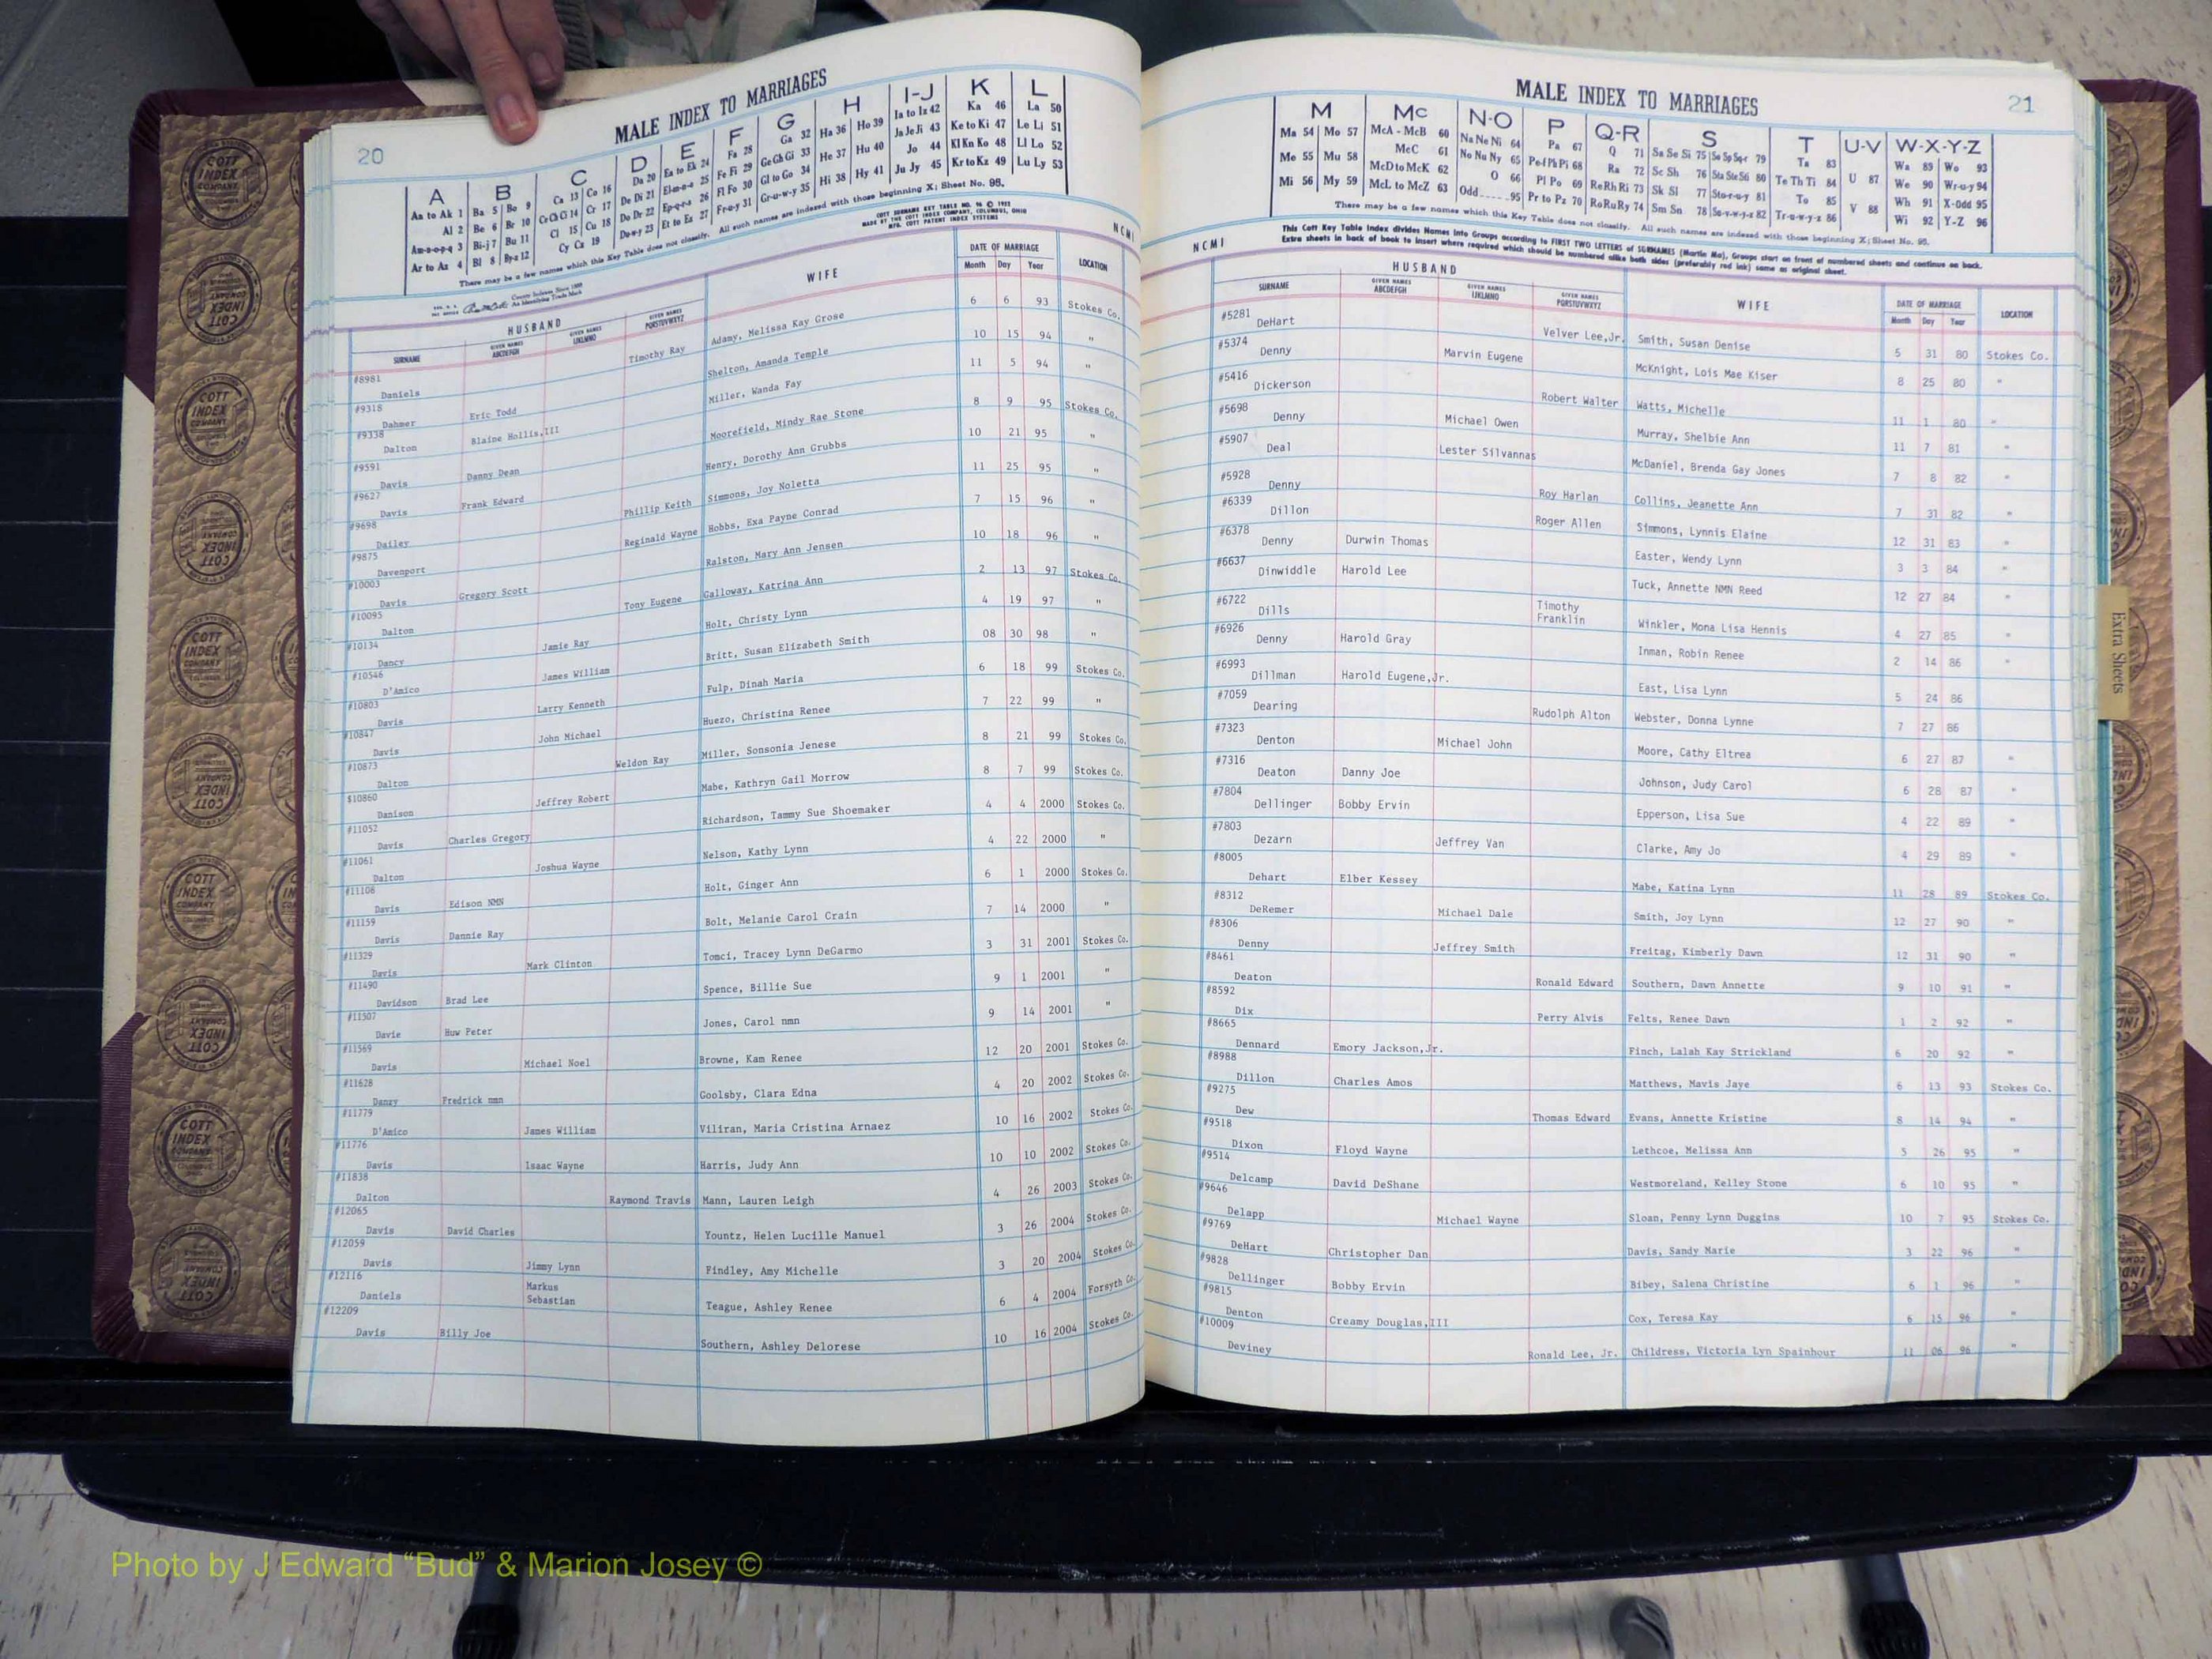 20
MALE INDEX TO MARRIAGES
A B C D E F G H I-J K L
Aa to Ak 1 Ba 5 Bo 9 Ca 13 Co 16 Da 20 Ea to Ek 24 Fa 28 Ga 32 Ha 36 Ho 39 Ia to Iz 42 Ka 46 La 50
Al 2 Be 6 Br 10 Ce Ch Ci 14 Cr 17 De Di 21 El-m-n-o 25 Fe Fi 29 Ge Gh Gi 33 He 37 Hu 40 Ja Je Ji 43 Ke to Ki 47 Le Li 51
Am-n-o-p-q 3 Bi-j 7 Bu 11 Cl 15 Cu 18 Do Dr 22 Ep-q-r-s 26 Fl Fo 30 Gl to Go 34 Hi 38 Hy 41 Jo 44 Kl Kn Ko 48 Ll Lo 52
Ar to Az 4 Bl 8 By-z 12 Cy Cz 19 Du-w-y 23 Et to Ez 27 Fr-u-y 31 Gr-u-w-y 35 Ju Jy 45 Kr to Kz 49 Lu Ly 53
There may be a few names which this Key Table does not classify. All such names are indexed with those beginning X; Sheet No. 95.
COTT SURNAME KEY TABLE NO. 96
MADE BY THE COTT INDEX COMPANY, COLUMBUS, OHIO
MFG. COTT PATENT INDEX SYSTEMS
NCMI
HUSBAND WIFE DATE OF MARRIAGE LOCATION
SURNAME GIVEN NAMES ABCDEFGH GIVEN NAMES IJKLMNO GIVEN NAMES PQRSTUVWXYZ Month Day Year
#8981 Daniels Timothy Ray Adamy, Melissa Kay Grose 6 6 93 Stokes Co.
#9318 Dahmer Eric Todd Shelton, Amanda Temple 10 15 94 "
#9338 Dalton Blaine Hollis,III Miller, Wanda Fay 11 5 94 "
#9591 Davis Danny Dean Moorefield, Mindy Rae Stone 8 9 95 Stokes Co.
#9627 Davis Frank Edward Henry, Dorothy Ann Grubbs 10 21 95 "
#9698 Dailey Phillip Keith Simmons, Joy Noletta 11 25 95 "
#9875 Davenport Reginald Wayne Hobbs, Exa Payne Conrad 7 15 96 "
#10003 Davis Gregory Scott Ralston, Mary Ann Jensen 10 18 96 "
#10095 Dalton Tony Eugene Galloway, Katrina Ann 2 13 97 Stokes Co.
#10134 Dancy Jamie Ray Holt, Christy Lynn 4 19 97 "
#10546 D'Amico James William Britt, Susan Elizabeth Smith 08 30 98 "
#10803 Davis Larry Kenneth Fulp, Dinah Maria 6 18 99 Stokes Co.
#10847 Davis John Michael Huezo, Christina Renee 7 22 99 "
#10873 Dalton Weldon Ray Miller, Sonsonia Jenese 8 21 99 Stokes Co.
$10860 Danison Jeffrey Robert Mabe, Kathryn Gail Morrow 8 7 99 Stokes Co.
#11052 Davis Charles Gregory Richardson, Tammy Sue Shoemaker 4 4 2000 Stokes Co.
#11061 Dalton Joshua Wayne Nelson, Kathy Lynn 4 22 2000 "
#11106 Davis Edison NMN Holt, Ginger Ann 6 1 2000 Stokes Co.
#11159 Davis Dannie Ray Bolt, Melanie Carol Crain 7 14 2000 "
#11329 Davis Mark Clinton Tomci, Tracey Lynn DeGarmo 3 31 2001 Stokes Co.
#11490 Davidson Brad Lee Spence, Billie Sue 9 1 2001 "
#11507 Davie Huw Peter Jones, Carol nmn 9 14 2001 "
#11569 Davis Michael Noel Browne, Kam Renee 12 20 2001 Stokes Co.
#11628 Danzy Fredrick nmn Goolsby, Clara Edna 4 20 2002 Stokes Co.
#11779 D'Amico James William Viliran, Maria Cristina Arnaez 10 16 2002 Stokes Co.
#11776 Davis Isaac Wayne Harris, Judy Ann 10 10 2002 Stokes Co.
#11838 Dalton Raymond Travis Mann, Lauren Leigh 4 26 2003 Stokes Co.
#12065 Davis David Charles Yountz, Helen Lucille Manuel 3 26 2004 Stokes Co.
#12059 Davis Jimmy Lynn Findley, Amy Michelle 3 20 2004 Stokes Co.
#12116 Daniels Markus Sebastian Teague, Ashley Renee 6 4 2004 Forsyth Co.
#12209 Davis Billy Joe Southern, Ashley Delorese 10 16 2004 Stokes Co.
MALE INDEX TO MARRIAGES
21
M Mc N-O P Q-R S T U-V W-X-Y-Z
Ma 54 Mo 57 McA - McB 60 Na Ne Ni 64 Pa 67 Q 71 Sa Se Si 75 So Sp Sq-r 79 Ta 83 U 87 Wa 89 Wo 93
Me 55 Mu 58 McC 61 No Nu Ny 65 Pe-f Ph Pi 68 Ra 72 Sc Sh 76 Sta Ste Sti 80 Te Th Ti 84 V 88 We 90 Wr-u-y 94
Mi 56 My 59 McD to McK 62 O 66 Pl Po 69 Re Rh Ri 73 Sk Sl 77 Sto-r-u-y 81 To 85 Wh 91 X-Odd 95
McL to McZ 63 Odd 95 Pr to Pz 70 Ro Ru Ry 74 Sm Sn 78 Su-v-w-y-z 82 Tr-u-w-y-z 86 Wi 92 Y-Z 96
There may be a few names which this Key Table does not classify. All such names are indexed with those beginning X; Sheet No. 95.
This Cott Key Table Index divides Names into Groups according to FIRST TWO LETTERS of SURNAMES (Martin Ma), Groups start on front of numbered sheets and continue on back.
Extra sheets in back of book to insert where required which should be numbered alike both sides (preferably red ink) same as original sheet.
NCMI
HUSBAND WIFE DATE OF MARRIAGE LOCATION
SURNAME GIVEN NAMES ABCDEFGH GIVEN NAMES IJKLMNO GIVEN NAMES PQRSTUVWXYZ Month Day Year
#5281 DeHart Velver Lee,Jr. Smith, Susan Denise 5 31 80 Stokes Co.
#5374 Denny Marvin Eugene McKnight, Lois Mae Kiser 8 25 80 "
#5416 Dickerson Robert Walter Watts, Michelle 11 1 80 "
#5698 Denny Michael Owen Murray, Shelbie Ann 11 7 81 "
#5907 Deal Lester Silvannas McDaniel, Brenda Gay Jones 7 8 82 "
#5928 Denny Roy Harlan Collins, Jeanette Ann 7 31 82 "
#6339 Dillon Roger Allen Simmons, Lynnis Elaine 12 31 83 "
#6378 Denny Durwin Thomas Easter, Wendy Lynn 3 3 84 "
#6637 Dinwiddle Harold Lee Tuck, Annette NMN Reed 12 27 84 "
#6722 Dills Timothy Franklin Winkler, Mona Lisa Hennis 4 27 85 "
#6926 Denny Harold Gray Inman, Robin Renee 2 14 86 "
#6993 Dillman Harold Eugene,Jr. East, Lisa Lynn 5 24 86
#7059 Dearing Rudolph Alton Webster, Donna Lynne 7 27 86
#7323 Denton Michael John Moore, Cathy Eltrea 6 27 87 "
#7316 Deaton Danny Joe Johnson, Judy Carol 6 28 87 "
#7804 Dellinger Bobby Ervin Epperson, Lisa Sue 4 22 89 "
#7803 Dezarn Jeffrey Van Clarke, Amy Jo 4 29 89 "
#8005 Dehart Elber Kessey Mabe, Katina Lynn 11 28 89 Stokes Co.
#8312 DeRemer Michael Dale Smith, Joy Lynn 12 27 90 "
#8306 Denny Jeffrey Smith Freitag, Kimberly Dawn 12 31 90 "
#8461 Deaton Ronald Edward Southern, Dawn Annette 9 10 91 "
#8592 Dix Perry Alvis Felts, Renee Dawn 1 2 92 "
#8665 Dennard Emory Jackson,Jr. Finch, Lalah Kay Strickland 6 20 92 "
#8988 Dillon Charles Amos Matthews, Mavis Jaye 6 13 93 Stokes Co.
#9275 Dew Thomas Edward Evans, Annette Kristine 8 14 94 "
#9518 Dixon Floyd Wayne Lethcoe, Melissa Ann 5 26 95 "
#9514 Delcamp David DeShane Westmoreland, Kelley Stone 6 10 95 "
#9646 Delapp Michael Wayne Sloan, Penny Lynn Duggins 10 7 95 Stokes Co.
#9769 DeHart Christopher Dan Davis, Sandy Marie 3 22 96 "
#9828 Dellinger Bobby Ervin Bibey, Salena Christine 6 1 96 "
#9815 Denton Creamy Douglas,III Cox, Teresa Kay 6 15 96 "
#10009 Deviney Ronald Lee, Jr. Childress, Victoria Lyn Spainhour 11 06 96 "
Extra Sheets
COTT INDEX COMPANY
Photo by J Edward “Bud” & Marion Josey ©